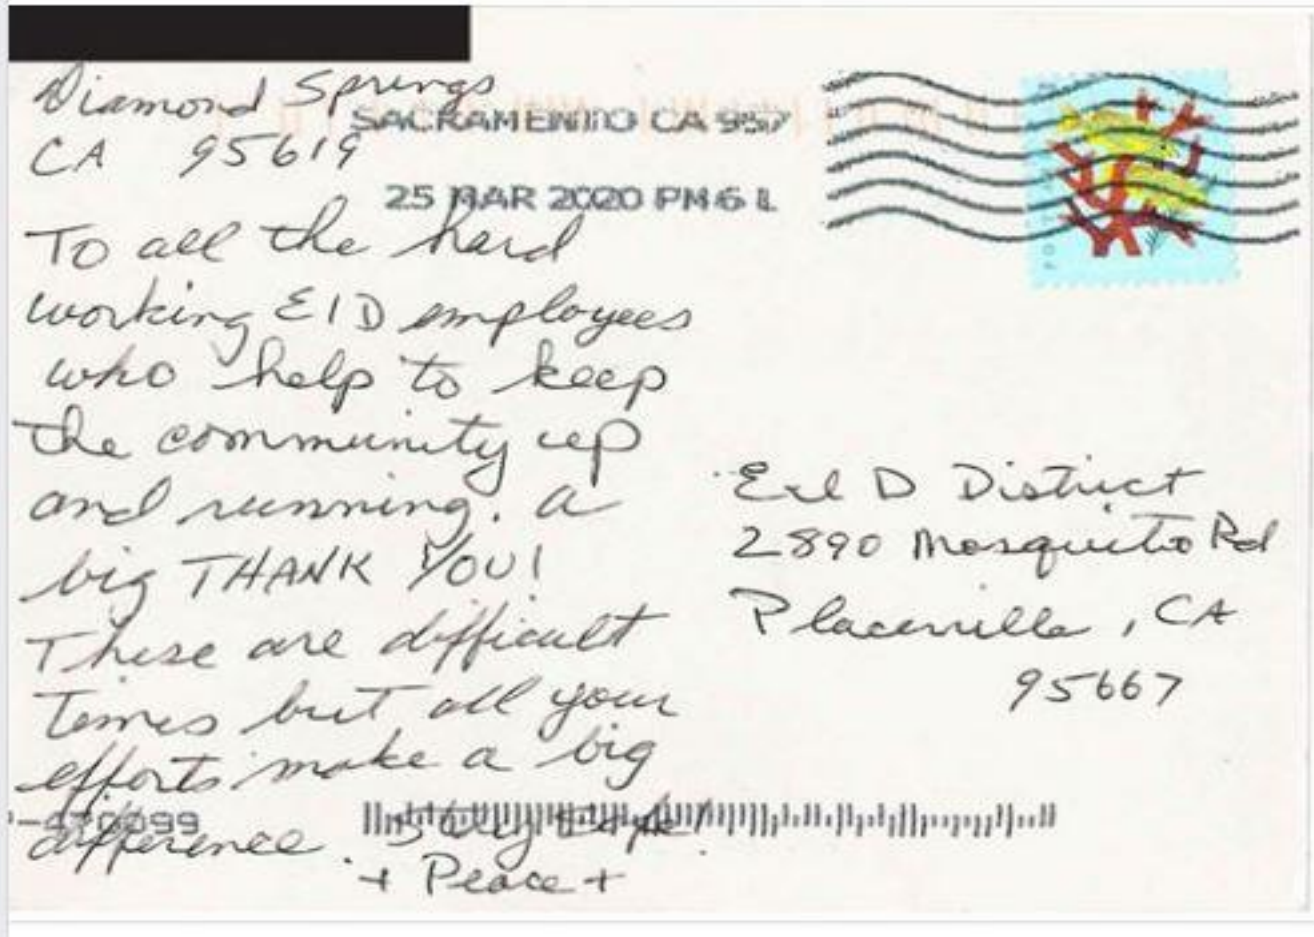 Diamond Springs
CA 95619
SACRAMENTO CA 957
25 MAR 2020 PM 6 L
To all the hard
working EID employees
who help to keep
the community up
and running. A
big THANK YOU!
These are difficult
times but all your
efforts make a big
difference. Stay Safe!
+ Peace +
E D District
2890 Mosquito Rd
Placerville, CA
95667